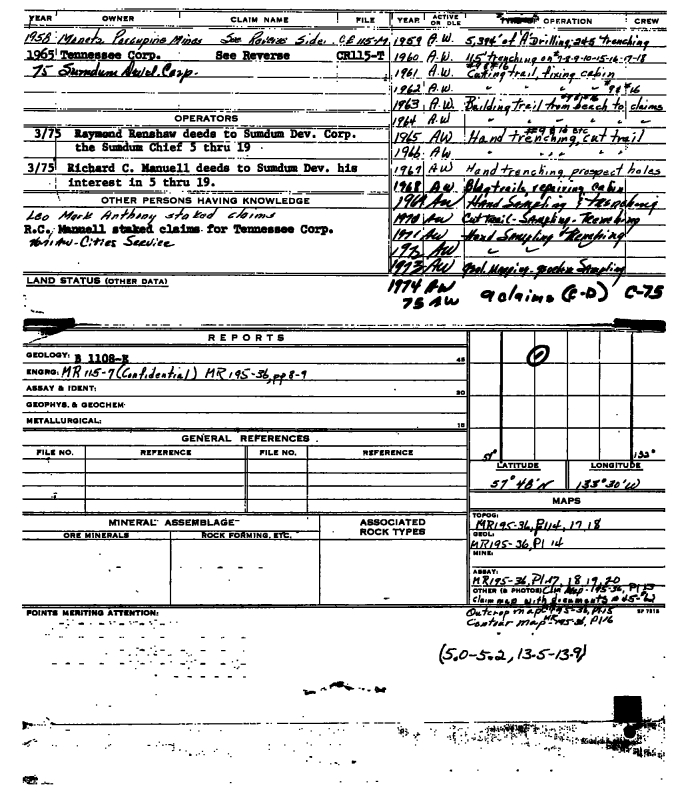 YEAR OWNER CLAIM NAME FILE
1958 Moneta Porcupine Mines See Reverse Side.
1965 Tennessee Corp. See Reverse CR115-T
75 Sumdum Devel. Corp.
OPERATORS
3/75 Raymond Renshaw deeds to Sumdum Dev. Corp.
the Sumdum Chief 5 thru 19
3/75 Richard C. Manuell deeds to Sumdum Dev. his
interest in 5 thru 19.
OTHER PERSONS HAVING KNOWLEDGE
Leo Mark Anthony staked claims
R.C. Manuell staked claims for Tennessee Corp.
AW-Cities Service
LAND STATUS (OTHER DATA)
YEAR ACTIVE OR IDLE OPERATION CREW
1959 A.W. 5,394' of A Drilling; 245 trenching
1960 A.W. 115 trenching on #7-8-9-10-15-16-17-18
1961 A.W. Cutting trail, fixing cabin
1962 A.W. " " #9 #16
1963 A.W. Building trail from beach to claims
1964 A.W. " "
1965 AW Hand trenching, cut trail
1966 AW " " " "
1967 AW Hand trenching prospect holes
1968 AW trails, repairing cabin
1969 AW Hand Sampling & Trenching
1970 AW Cut trail - Sampling - Trenching
1971 AW Hand Sampling & Trenching
1972 AW " "
1973 AW Geol. Mapping - geochem Sampling
1974 AW
75 AW 9 claims (C-D) C-75
REPORTS
GEOLOGY: B 1108-E 45
ENGRG: MR 115-7 (Confidential) MR 195-36, pp 8-9
ASSAY & IDENT: 30
GEOPHYS. & GEOCHEM.
METALLURGICAL: 15
GENERAL REFERENCES
FILE NO. REFERENCE FILE NO. REFERENCE
57° 133°
LATITUDE LONGITUDE
57° 48' N 133° 30' W
MAPS
TOPOG: MR195-36, Pl 14, 17, 18
GEOL: MR195-36, Pl 14
MINE:
ASSAY: MR195-36, Pl 17, 18, 19, 20
OTHER (& PHOTOS) Clm Map - 195-36, Pl 13
Claim map with documents
Outcrop map MR195-36, Pl 15
Contour map MR 195-36, Pl 16
MINERAL ASSEMBLAGE ASSOCIATED ROCK TYPES
ORE MINERALS ROCK FORMING, ETC.
POINTS MERITING ATTENTION:
(5.0-5.2, 13.5-13.9)